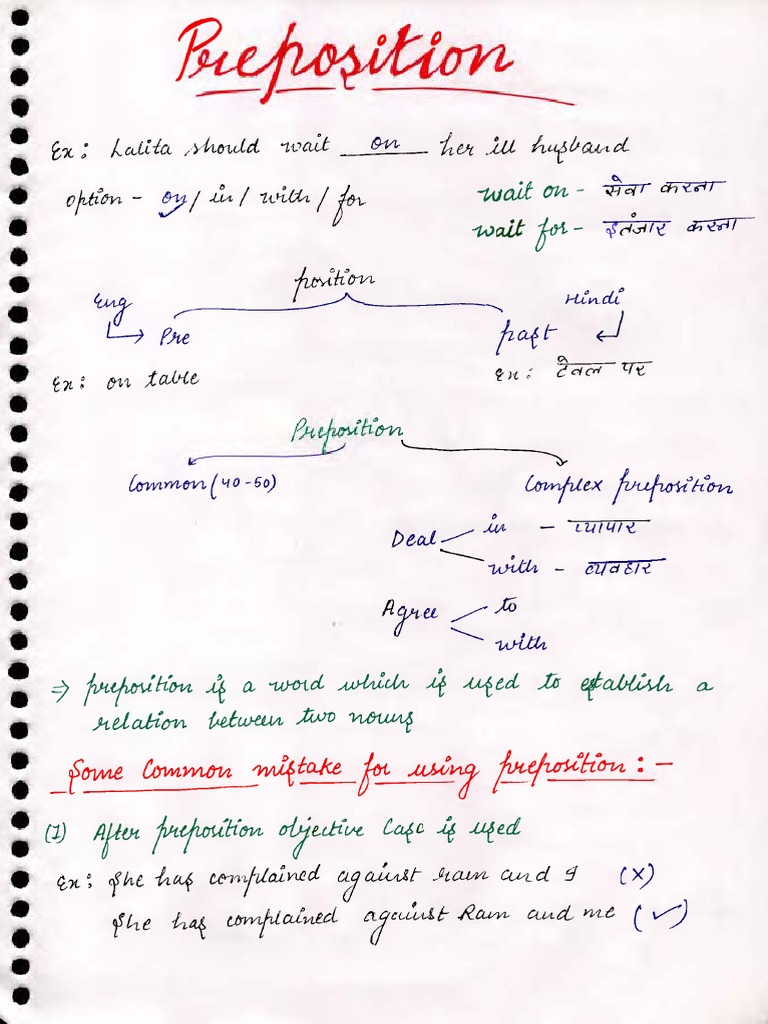 Preposition
Ex: Lalita should wait on her ill husband
option - on / in / with / for
wait on - सेवा करना
wait for - इतंजार करना
position
Eng
Hindi
Pre
past
Ex: on table
Ex: टेवल पर
Preposition
Common (40-50)
Complex preposition
Deal
in - व्यापार
with - व्यवहार
Agree
to
with
⇒ preposition is a word which is used to establish a
relation between two nouns
Some Common mistake for using preposition : -
(1) After preposition objective Case is used
Ex: She has complained against ram and I (×)
She has complained against Ram and me (✓)